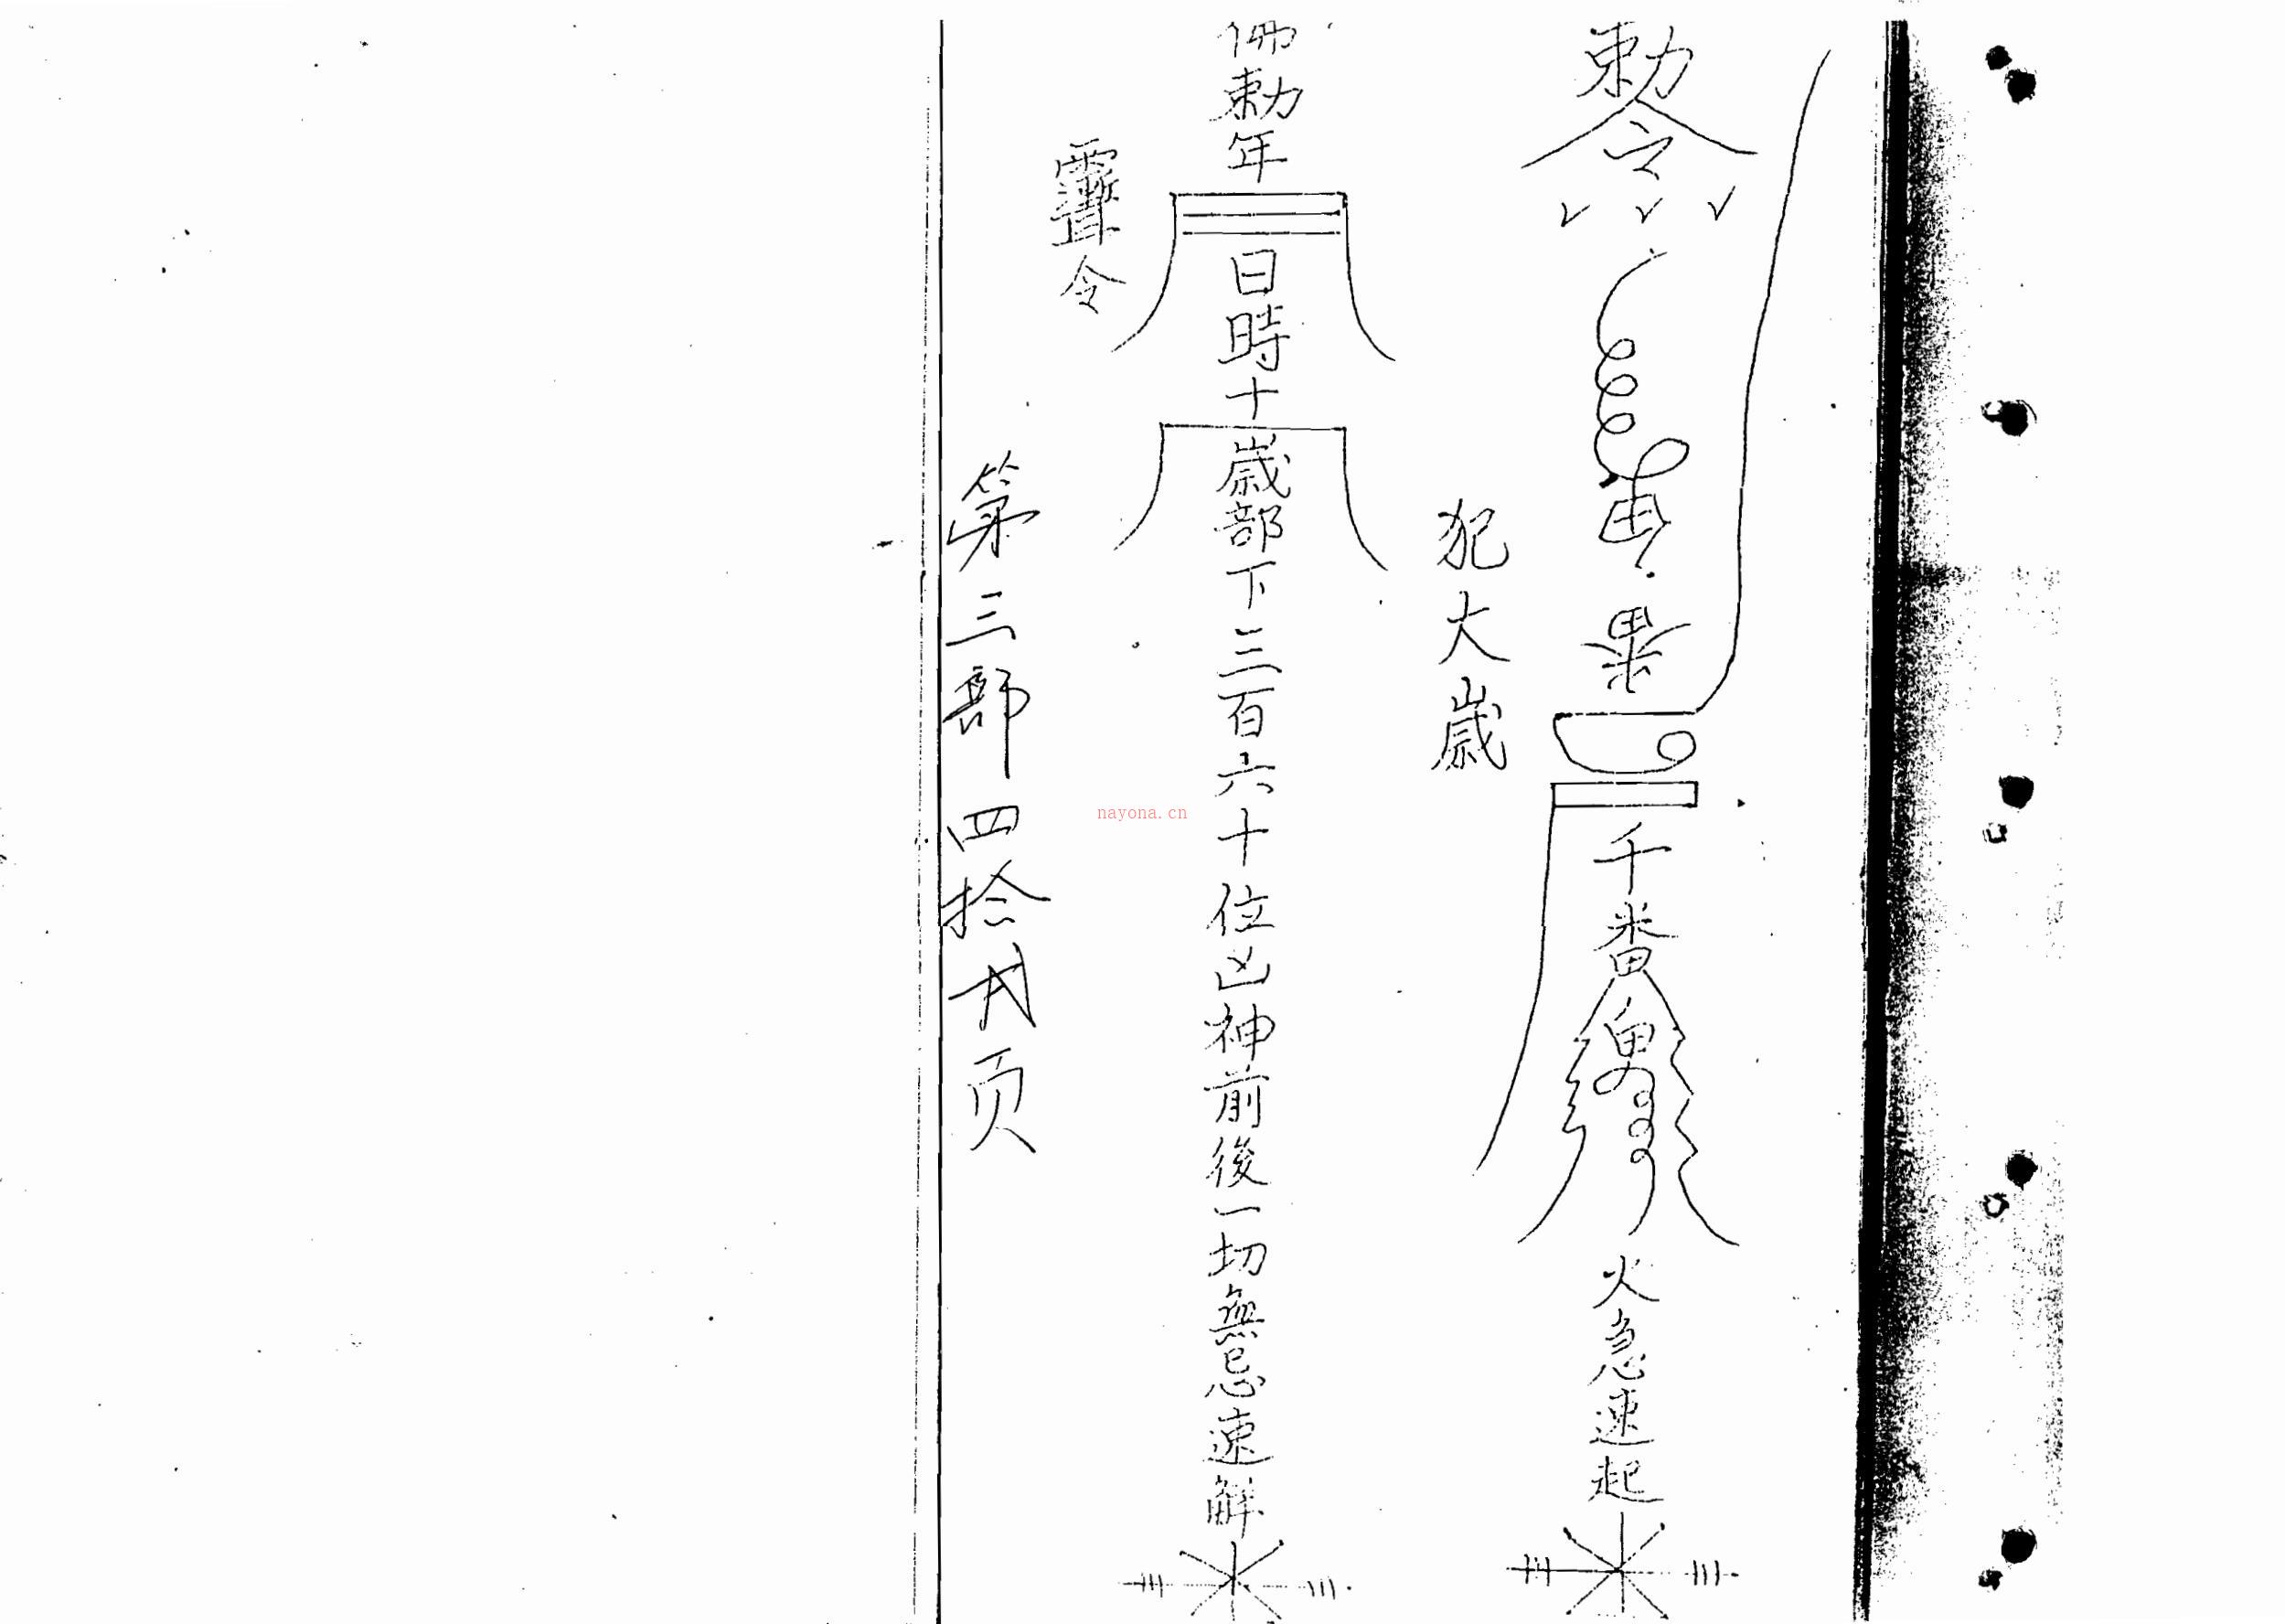 勅令
千番
火急速起
犯大歲
佛勅年
日時十歲部下三百六十位凶神前後一切無忌速解
令
第三部四拾弍页
nayona.cn